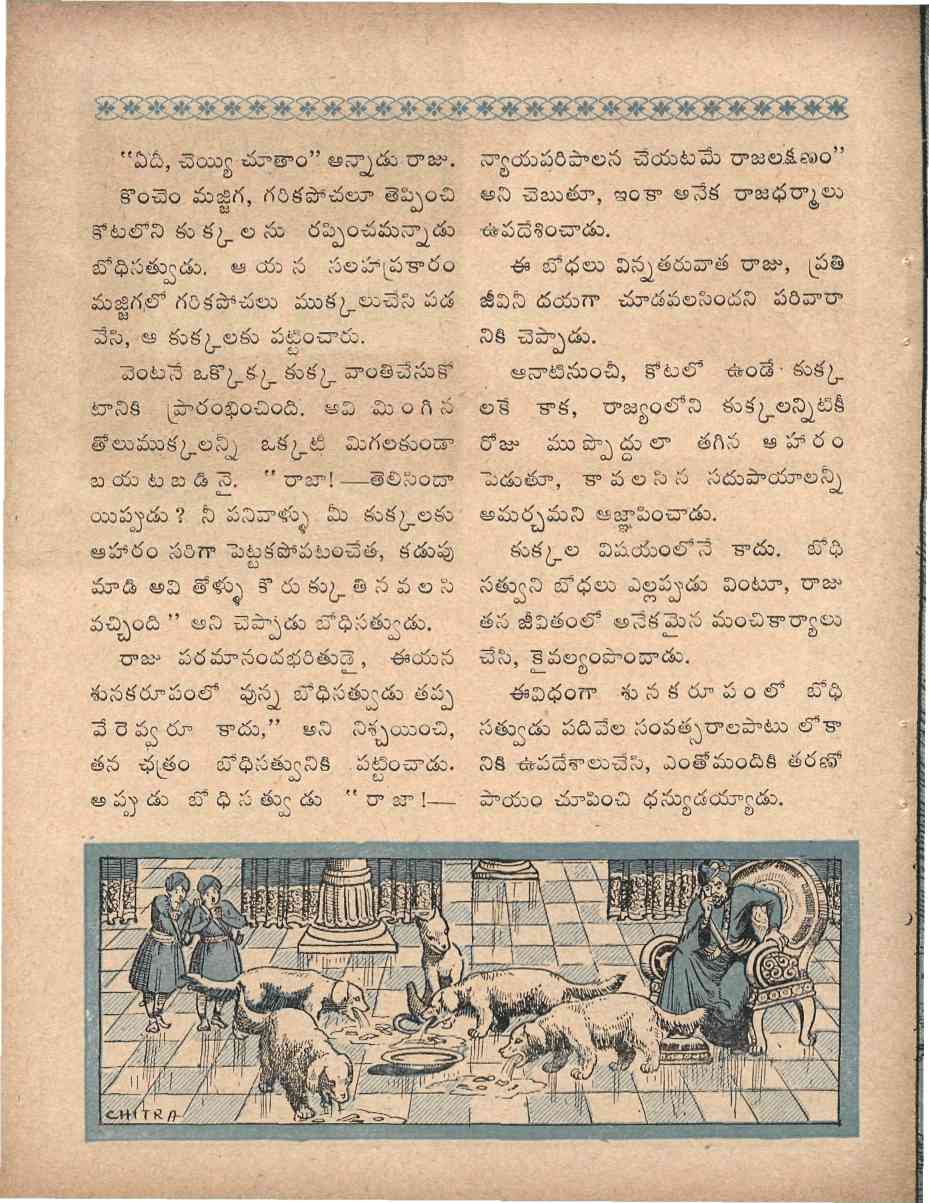 "ఏదీ, చెయ్యి చూతాం" అన్నాడు రాజు.
కొంచెం మజ్జిగ, గరికపోచలూ తెప్పించి
కోటలోని కుక్కలను రప్పించమన్నాడు
బోధిసత్వుడు. ఆయన సలహాప్రకారం
మజ్జిగలో గరికపోచలు ముక్కలుచేసి పడ
వేసి, ఆ కుక్కలకు పట్టించారు.
వెంటనే ఒక్కొక్క కుక్క వాంతిచేసుకో
టానికి ప్రారంభించింది. అవి మింగిన
తోలుముక్కలన్నీ ఒక్కటీ మిగలకుండా
బయటబడినై. "రాజా!—తెలిసిందా
యిప్పుడు? నీ పనివాళ్ళు మీ కుక్కలకు
ఆహారం సరిగా పెట్టకపోవటంచేత, కడుపు
మాడి అవి తోళ్ళు కొరుక్కుతినవలసి
వచ్చింది" అని చెప్పాడు బోధిసత్వుడు.
రాజు పరమానందభరితుడై, ఈయన
శునకరూపంలో వున్న బోధిసత్వుడు తప్ప
వేరెవ్వరూ కాదు," అని నిశ్చయించి,
తన ఛత్రం బోధిసత్వునికి పట్టించాడు.
అప్పుడు బోధిసత్వుడు "రాజా!—
న్యాయపరిపాలన చేయటమే రాజలక్షణం"
అని చెబుతూ, ఇంకా అనేక రాజధర్మాలు
ఉపదేశించాడు.
ఈ బోధలు విన్నతరువాత రాజు, ప్రతి
జీవినీ దయగా చూడవలసిందని పరివారా
నికి చెప్పాడు.
ఆనాటినుంచీ, కోటలో ఉండే కుక్క
లకే కాక, రాజ్యంలోని కుక్కలన్నిటికీ
రోజు ముప్పొద్దులా తగిన ఆహారం
పెడుతూ, కావలసిన సదుపాయాలన్నీ
అమర్చమని ఆజ్ఞాపించాడు.
కుక్కల విషయంలోనే కాదు. బోధి
సత్వుని బోధలు ఎల్లప్పుడు వింటూ, రాజు
తన జీవితంలో అనేకమైన మంచికార్యాలు
చేసి, కైవల్యంపొందాడు.
ఈవిధంగా శునకరూపంలో బోధి
సత్వుడు పదివేల సంవత్సరాలపాటు లోకా
నికి ఉపదేశాలుచేసి, ఎంతోమందికి తరణో
పాయం చూపించి ధన్యుడయ్యాడు.
CHITRA